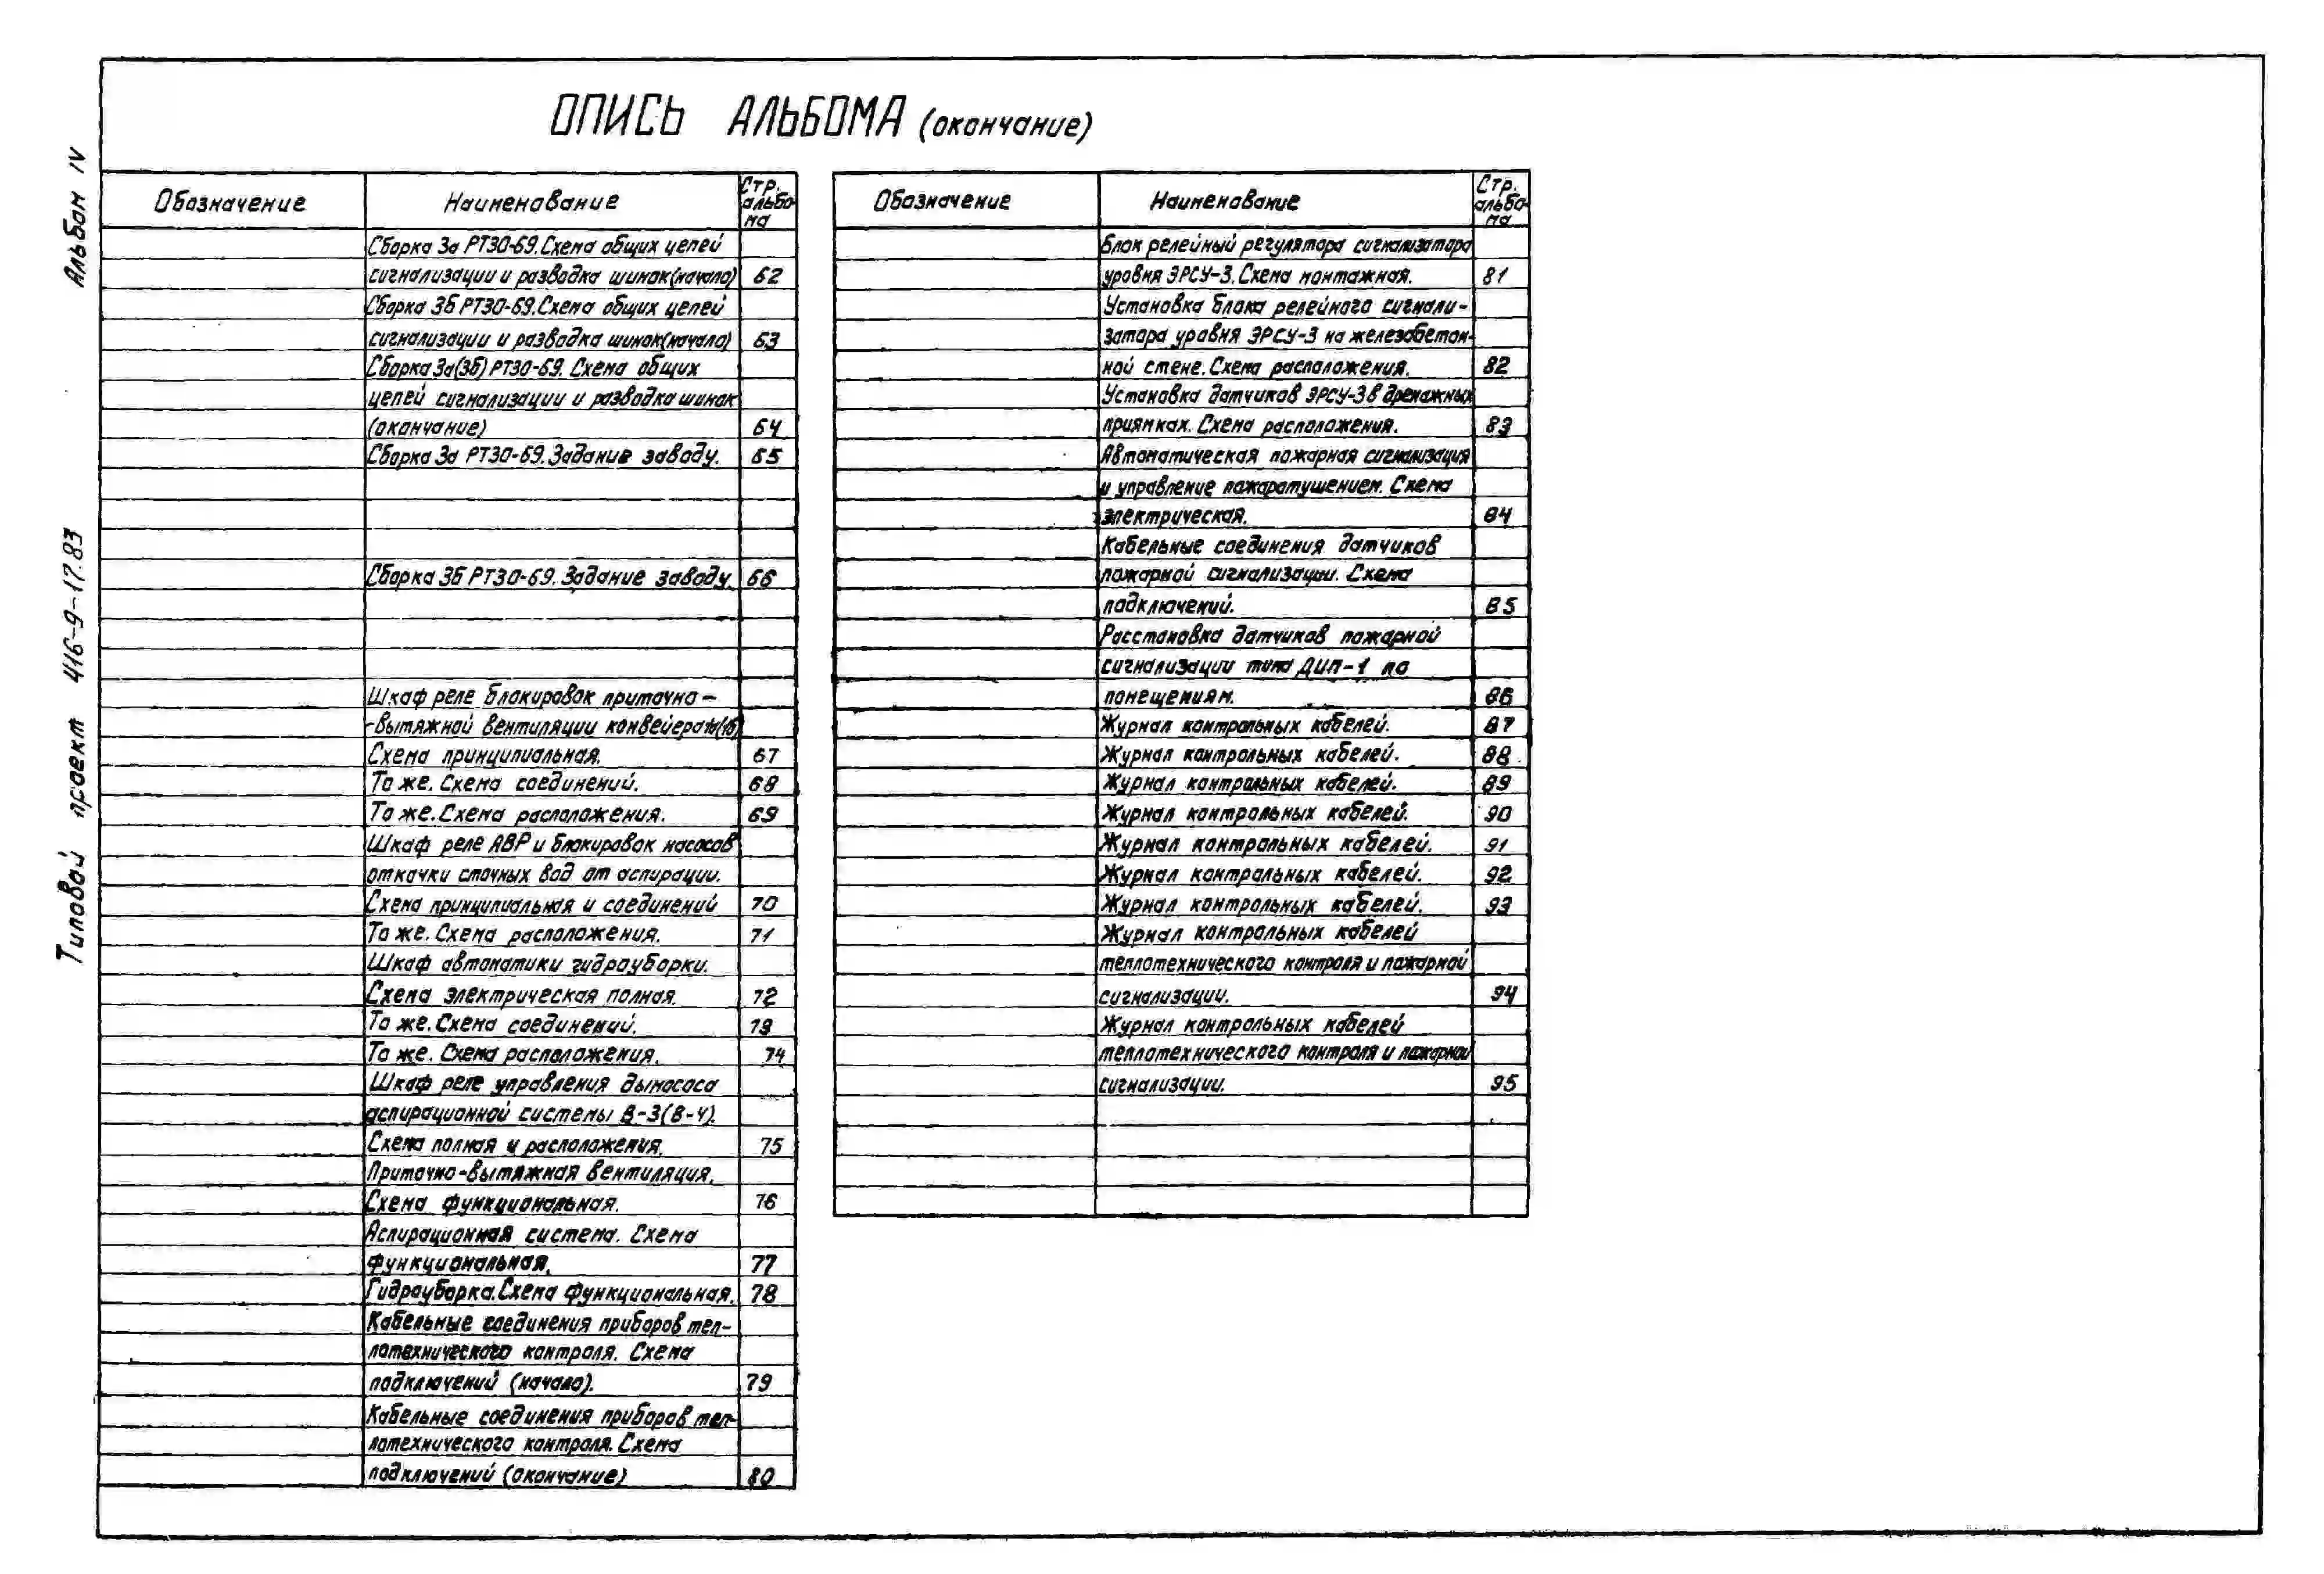 ОПИСЬ АЛЬБОМА (окончание)
Альбом IV
Типовой проект 416-9-17.83
Обозначение Наименование Стр. альбо-
ма
Сборка 3а РТ30-69. Схема общих цепей
сигнализации и разводка шинок (начало) 62
Сборка 3Б РТ30-69. Схема общих цепей
сигнализации и разводка шинок (начало) 63
Сборка 3а(3б) РТ30-69. Схема общих
цепей сигнализации и разводка шинок
(окончание) 64
Сборка 3а РТ30-69. Задание заводу. 65
Сборка 3Б РТ30-69. Задание заводу. 66
Шкаф реле блокировок приточно-
-вытяжной вентиляции конвейера 1а(1б)
Схема принципиальная. 67
То же. Схема соединений. 68
То же. Схема расположения. 69
Шкаф реле АВР и блокировок насосов
откачки сточных вод от аспирации.
Схема принципиальная и соединений 70
То же. Схема расположения. 71
Шкаф автоматики гидроуборки.
Схема электрическая полная. 72
То же. Схема соединений. 73
То же. Схема расположения. 74
Шкаф реле управления дымососа
аспирационной системы В-3(В-4).
Схема полная и расположения. 75
Приточно-вытяжная вентиляция.
Схема функциональная. 76
Аспирационная система. Схема
функциональная. 77
Гидроуборка. Схема функциональная. 78
Кабельные соединения приборов теп-
лотехнического контроля. Схема
подключений (начало). 79
Кабельные соединения приборов теп-
лотехнического контроля. Схема
подключений (окончание) 80
Обозначение Наименование Стр. альбо-
ма
Блок релейный регулятора сигнализатора
уровня ЭРСУ-3. Схема монтажная. 81
Установка блока релейного сигнали-
затора уровня ЭРСУ-3 на железобетон-
ной стене. Схема расположения. 82
Установка датчиков ЭРСУ-3 в дренажных
приямках. Схема расположения. 83
Автоматическая пожарная сигнализация
и управление пожаротушением. Схема
электрическая. 84
Кабельные соединения датчиков
пожарной сигнализации. Схема
подключений. 85
Расстановка датчиков пожарной
сигнализации типа ДИП-1 по
помещениям. 86
Журнал контрольных кабелей. 87
Журнал контрольных кабелей. 88
Журнал контрольных кабелей. 89
Журнал контрольных кабелей. 90
Журнал контрольных кабелей. 91
Журнал контрольных кабелей. 92
Журнал контрольных кабелей. 93
Журнал контрольных кабелей
теплотехнического контроля и пожарной
сигнализации. 94
Журнал контрольных кабелей
теплотехнического контроля и пожарной
сигнализации. 95